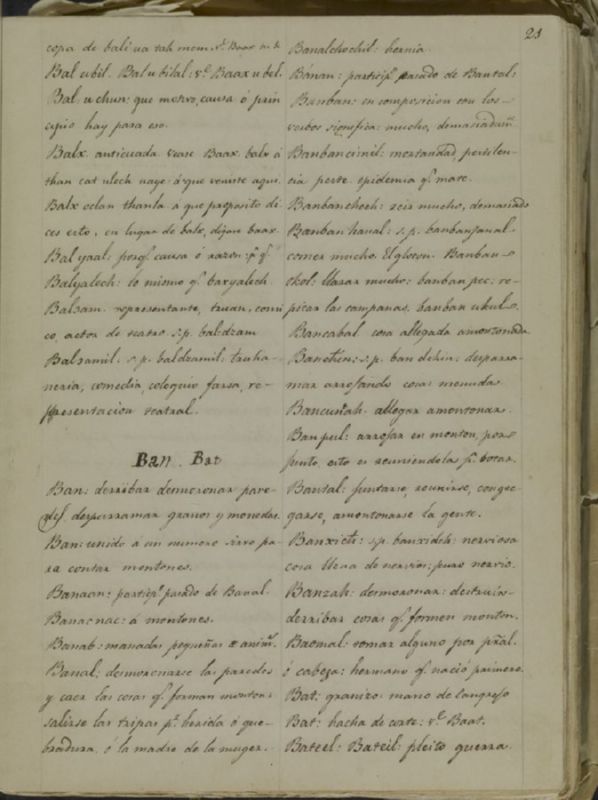 23
copa de bal: ua tah mem. v.e Baax a. &
Bal ubil. Bal u bilal: v.e Baax u bel.
Bal. u chun: que motivo, causa ó prin
cipio hay para eso.
Balx. anticuada vease Baax. balx á
than cat ulech uaye: á que veniste aqui.
Balx oclan thanla a que proposito di
ces esto, en lugar de balx, dijeu baax
Bal yaal: porq.e causa ó razon: p.r q.e
Balyalech: lo mismo q.e baxyalech.
Balsam. representante, truan, comi
co, actor de teatro s.p. baldzam
Balsamil. s.p. baldzamil: truha-
neria, comedia, coloquio farsa, re-
presentacion teatral.
Ban. Bat
Ban: derribar desmoronar pare-
des, desparramar granos y monedas.
Ban: unido á un numero sirve pa-
ra contar montones.
Banaan: particip.o pasado de Banal.
Banacnac: á montones.
Banab: manadas pequeñas de anim.s
Banal: desmoronarse las paredes
y caer las cosas q.e forman monton:
salirse las tripas p.r herida ó que-
bradura, ó la madre de la muger.
Banalchochil: hernia.
Bánan: particip.o pasado de Bantal:
Banban: en composicion con los
verbos significa: mucho, demasiadam.te
Banbancimil: mortandad, pestilen-
cia peste. epidemia q.e mate.
Banbancheeh: reir mucho, demasiado
Banban hanal: s.p. banbanjanal.
comer mucho. El gloton. Banban-
okol: llorar mucho: banban pec: re-
picar las campanas. banban ukul
Bancabal cosa allegada amontonada
Banchin: s.p. ban dchin: desparra-
mar arrojando cosas menuda
Bancunah allegar amontonar.
Banpul: arrojar en monton, por
junto, esto es reuniendola p.a botar.
Bantal: juntarse, reunirse, congre-
garse, amontonarse la gente.
Banxich: s.p. banxidch: nerviosa
cosa llena de nervios: puro nervio.
Banzah: desmoronar: destruir-
derribar cosas q.e formen monton.
Baomal: tomar alguno por p̃ñal.
ó cabeza: hermano q.e nació primero.
Bat: granizo: mano de langosto
Bat: hacha de corte: v.e Baat.
Bateel: Bateil: pleito guerra.